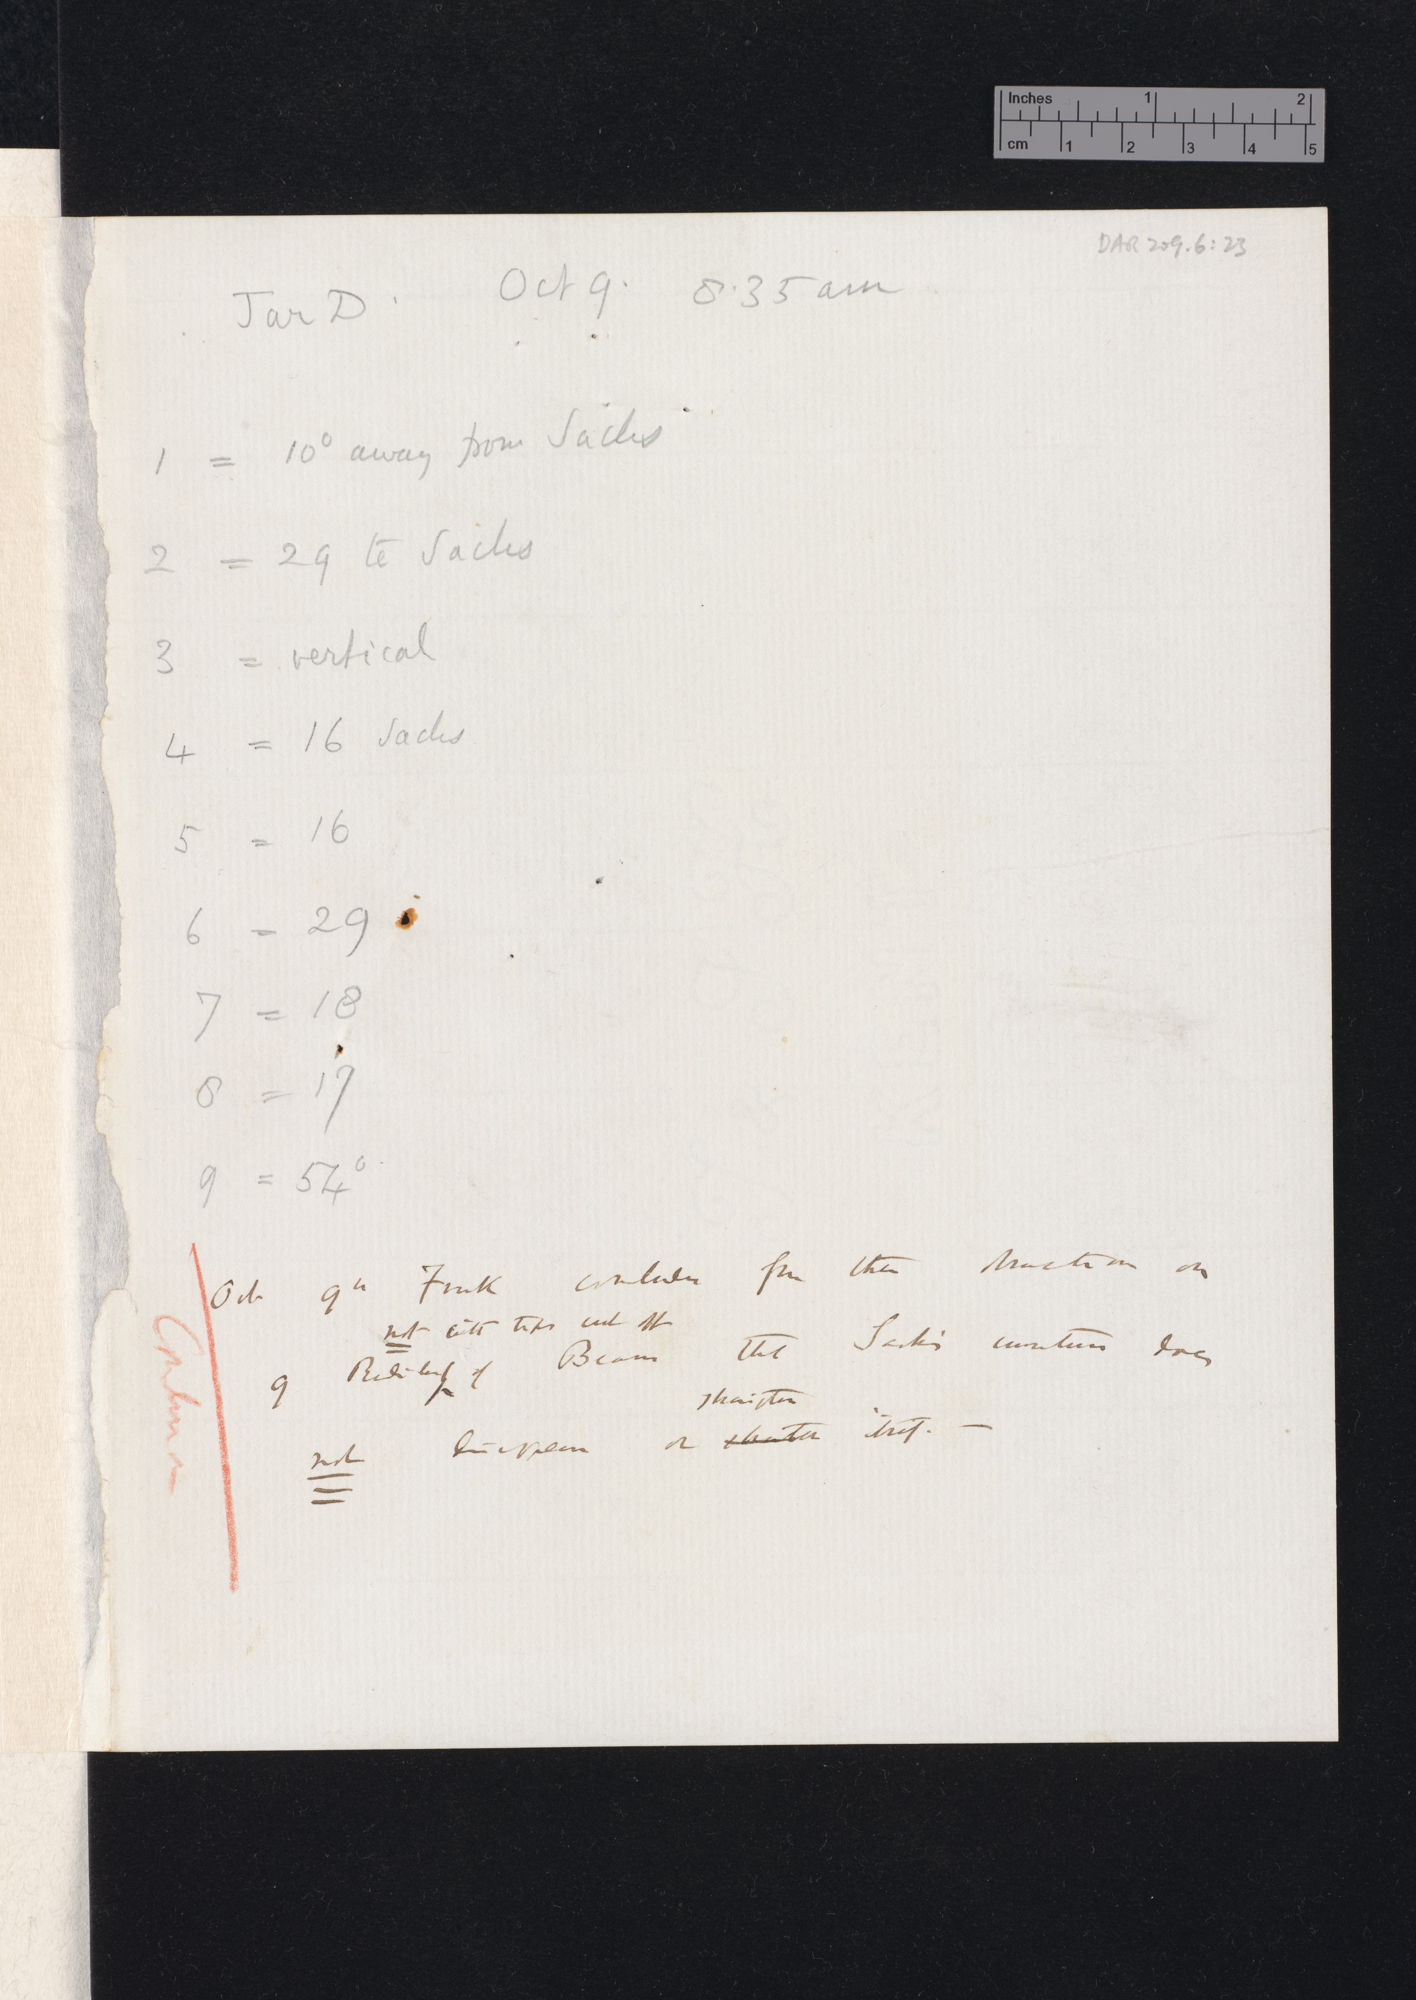 Inches 1 2
cm 1 2 3 4 5
DAR 209.6:23
Jar D. Oct 9. 8.35 am
1 = 10° away from Sachs
2 = 29 to Sachs
3 = vertical
4 = 16 Sachs
5 = 16
6 = 29
7 = 18
8 = 17
9 = 54°
Oct 9th Frank concludes from these observation on
not with tips cut off
9 Radicles of Beans that Sachs' curvature does
straighten
not disappear or itself. —